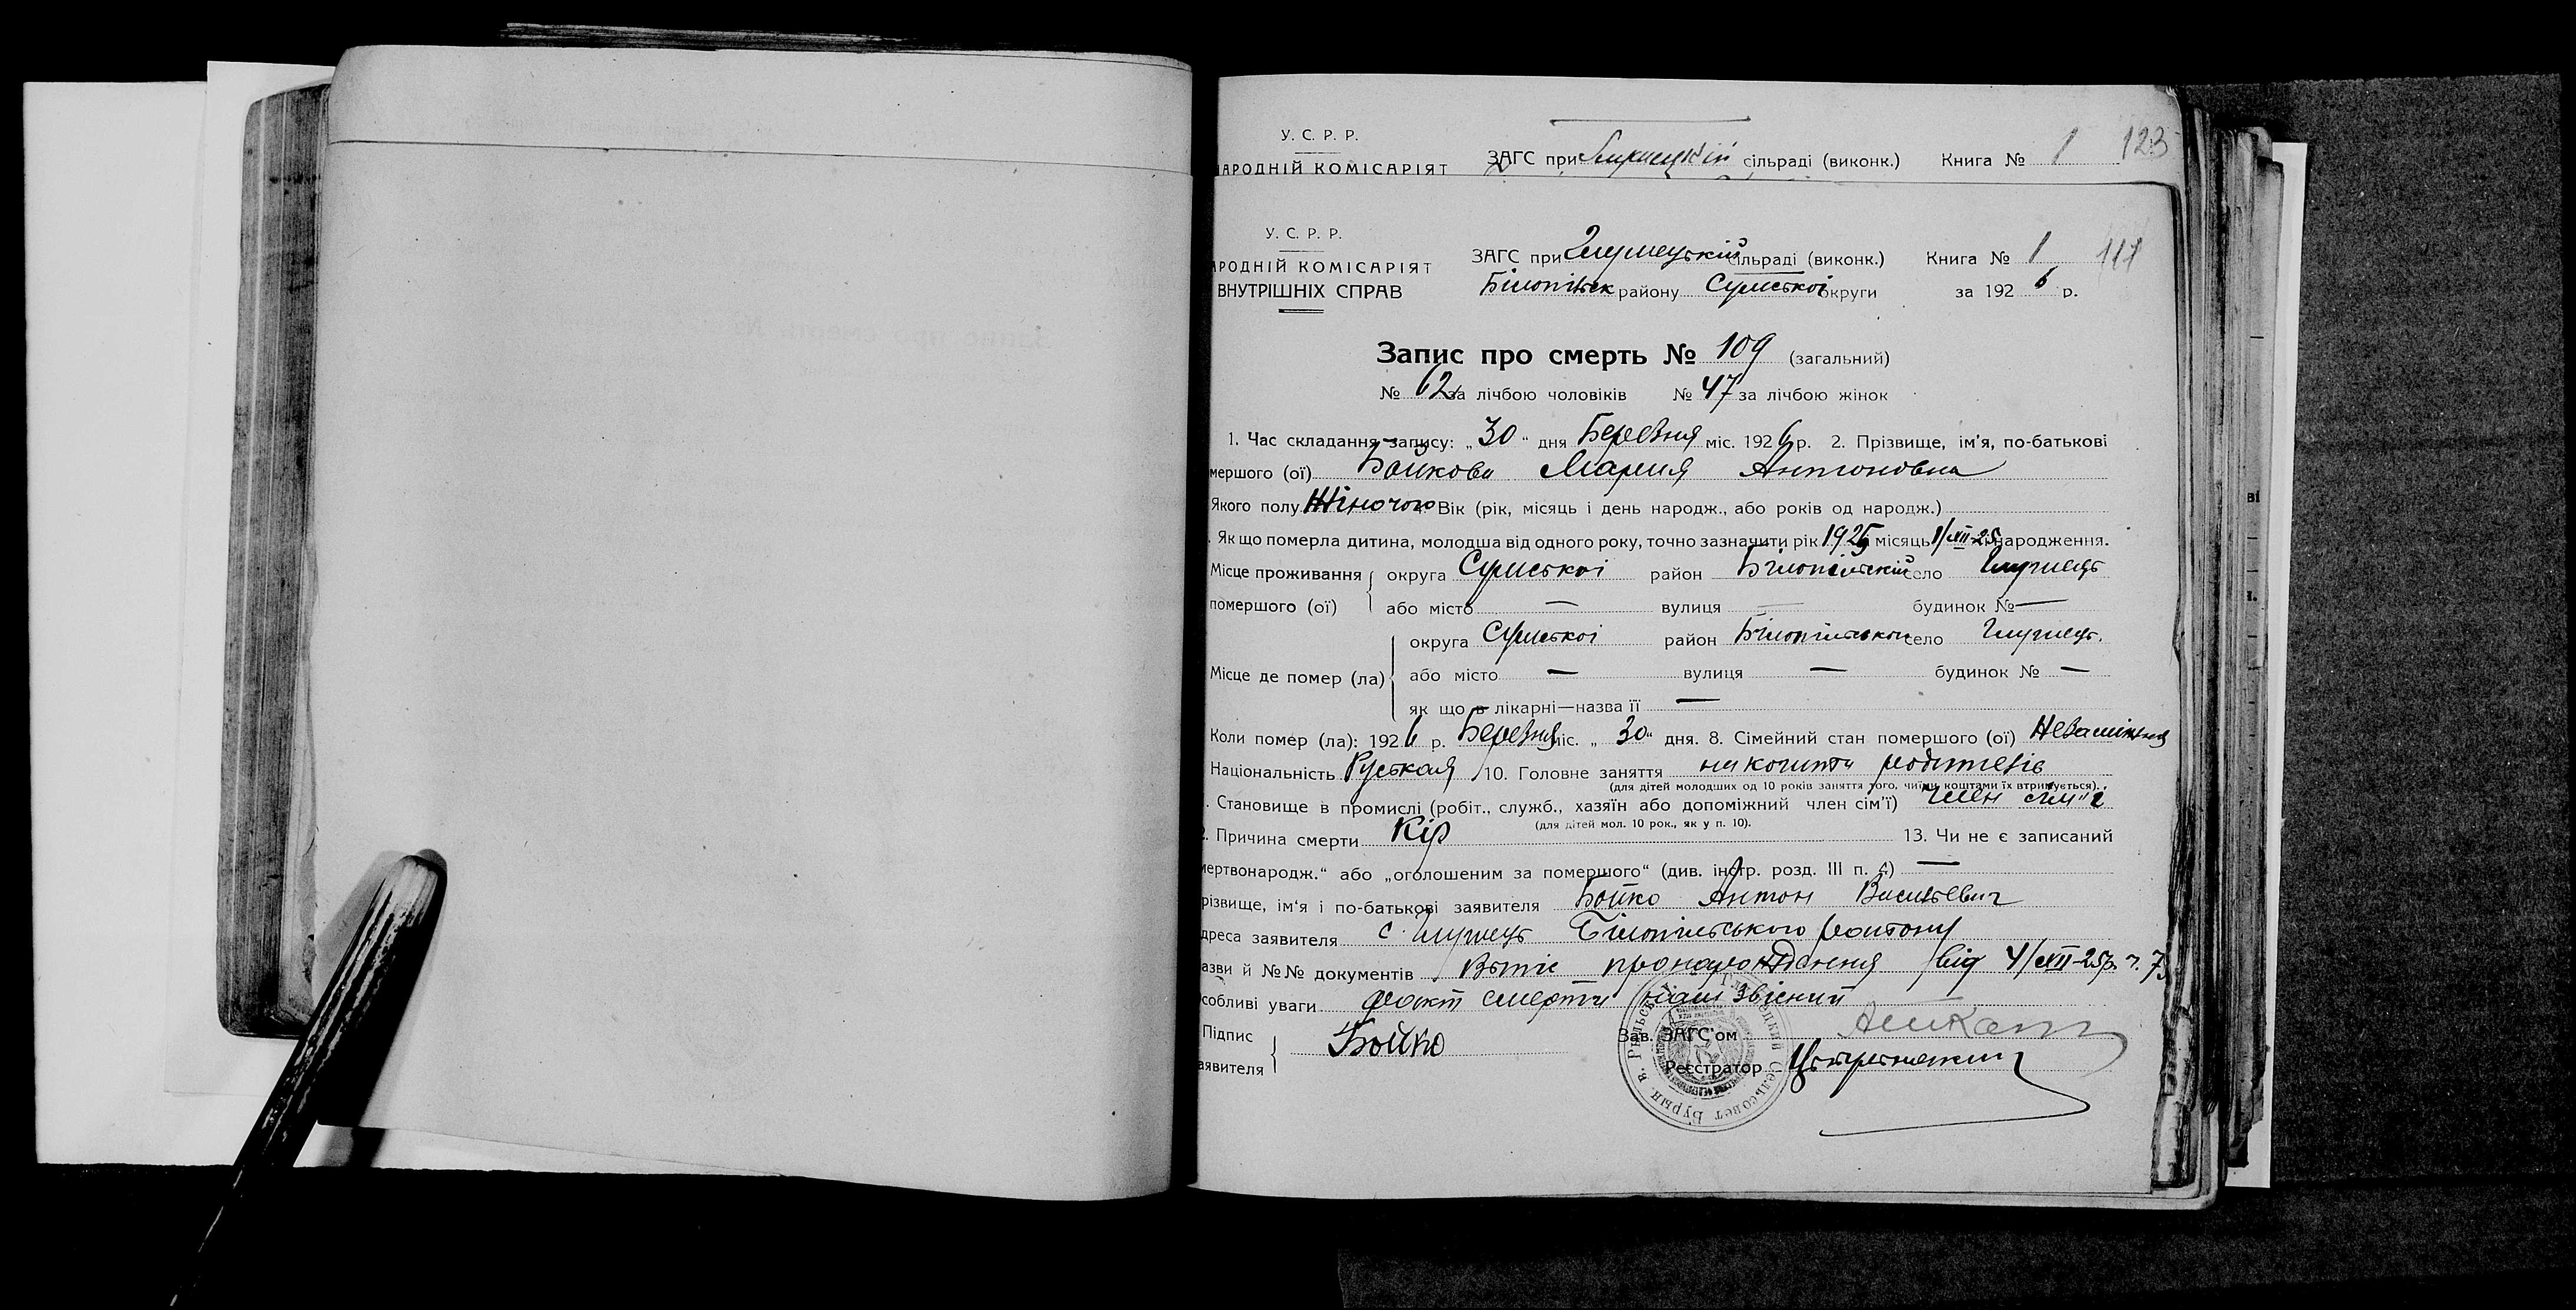 У. С. Р. Р.
АРОДНІЙ КОМІСАРІЯТ ЗАГС при сільраді (виконк.) Книга № 1 123
У. С. Р. Р.
РОДНІЙ КОМІСАРІЯТ ЗАГС при Глушецькій сільраді (виконк.) Книга № 1 111
ВНУТРІШНІХ СПРАВ Білопільск району Сумської округи за 1926 р.
Запис про смерть № 109 (загальний)
№ 62 за лічбою чоловіків № 47 за лічбою жінок
1. Час складання запису: „30“ дня Березня міс. 1926 р. 2. Прізвище, ім’я, по-батькові
мершого (ої) Бойкова Мария Антоновна
Якого полу Жіночого Вік (рік, місяць і день народж., або років од народж.)
. Як що померла дитина, молодша від одного року, точно зазначити рік 1925 місяць 1/XII-25 народження.
Місце проживання округа Сумської район Білопільский село Глушець
помершого (ої) або місто — вулиця — будинок № —
округа Сумської район Білопільського село Глушець.
Місце де помер (ла) або місто — вулиця — будинок № —
як що в лікарні—назва її —
Коли помер (ла): 1926 р. Березня міс. „30“ дня. 8. Сімейний стан помершого (ої)
Національність Руська 10. Головне заняття на кошти родителів
(для дітей молодших од 10 років заняття того, чиїми коштами їх втримується).
. Становище в промислі (робіт., служб., хазяїн або допоміжний член сім’ї) член сім"ї
(для дітей мол. 10 рок., як у п. 10).
. Причина смерти Кір 13. Чи не є записаний
мертвонародж.“ або „оголошеним за помершого“ (див. інстр. розд. III п. 4) —
різвище, ім’я і по-батькові заявителя Бойко Антон Васильевич
дреса заявителя с. Глушець Білопільського району
азви й №№ документів Витіс про народження від 4/XII-25р. ч. 7
собливі уваги факт смерти нам звісний
Підпис Бойко Зав. ЗАГС’ом
аявителя Реєстратор
Сельсовет Бурын. в. Рыльск